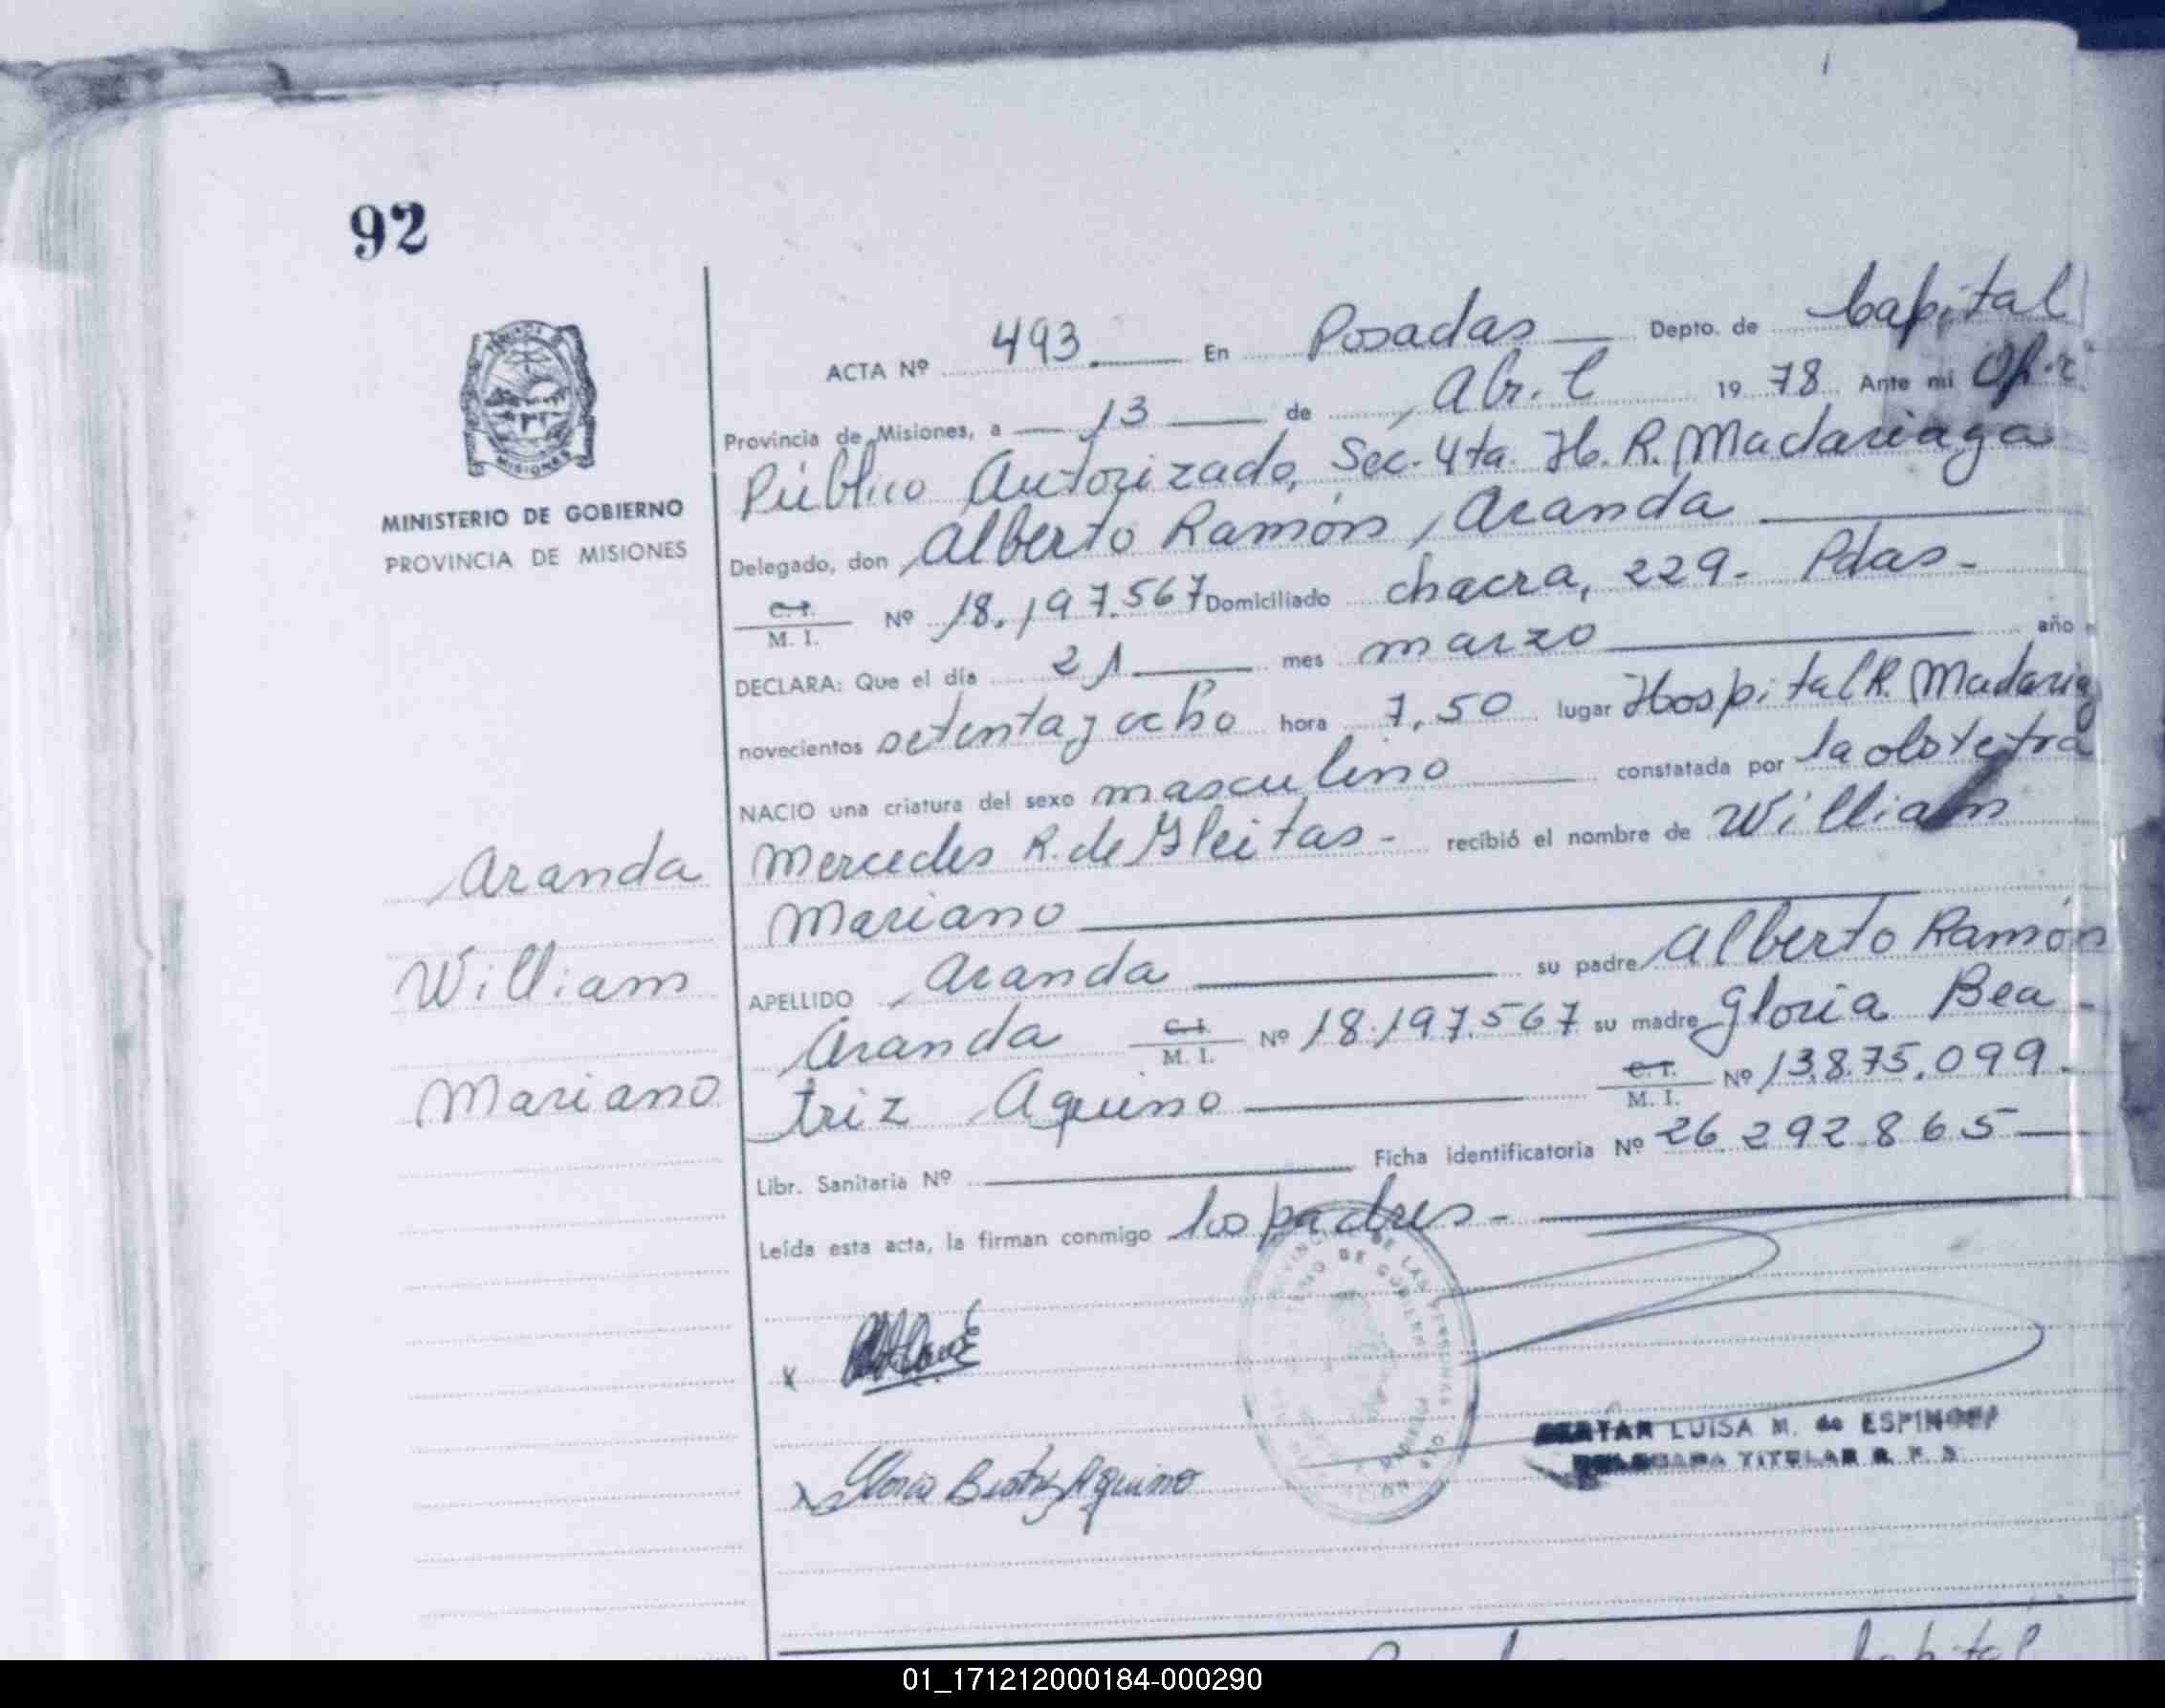 92
MINISTERIO DE GOBIERNO
PROVINCIA DE MISIONES
Aranda
William
Mariano
ACTA Nº 493 En Posadas Depto. de Capital
Provincia de Misiones, a 13 de Abril 1978 Ante mí
Público Autorizado, Sec. 4ta. H. R. Madariaga
Delegado, don Alberto Ramón Aranda
C. I. / M. I. Nº 18.197.567 Domiciliado chacra, 229- Pdas-
DECLARA: Que el día 21 mes marzo año
novecientos setenta y ocho hora 7,50 lugar Hospital R. Madariag
NACIO una criatura del sexo masculino constatada por la obstetra
Mercedes R. de Gleitas- recibió el nombre de William
Mariano
APELLIDO Aranda su padre Alberto Ramón
Aranda C. I. / M. I. Nº 18.197.567 su madre Gloria Bea-
triz Aquino C. I. / M. I. Nº 13.875.099.
Libr. Sanitaria Nº Ficha identificatoria Nº 26.292.865
Leída esta acta, la firman conmigo los padres-
x
x Gloria Beatriz Aquino
LUISA M. de ESPINOSA
TITULAR
01_171212000184-000290